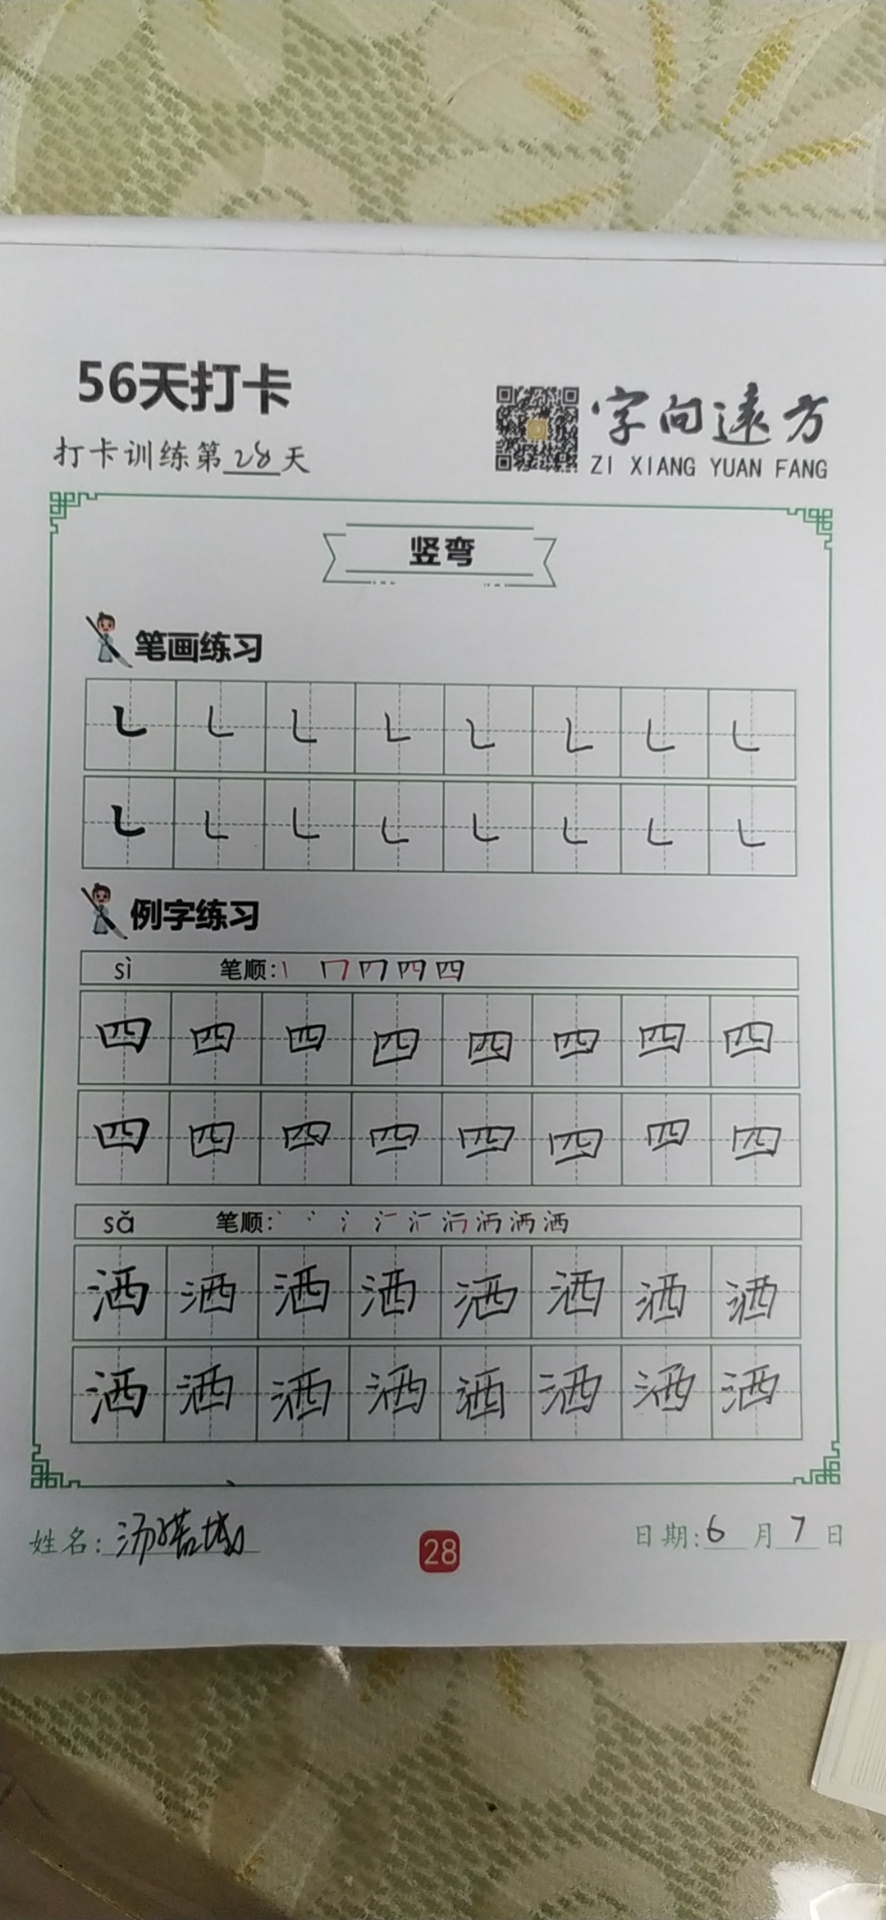 56天打卡
打卡训练第28天
字向远方
ZI XIANG YUAN FANG
竖弯
笔画练习
㇄ ㇄ ㇄ ㇄ ㇄ ㇄ ㇄ ㇄
㇄ ㇄ ㇄ ㇄ ㇄ ㇄ ㇄ ㇄
例字练习
sì 笔顺:
四 四 四 四 四 四 四 四
四 四 四 四 四 四 四 四
sǎ 笔顺:
洒 洒 洒 洒 洒 洒 洒 洒
洒 洒 洒 洒 洒 洒 洒 洒
姓名:
28
日期:6月7日